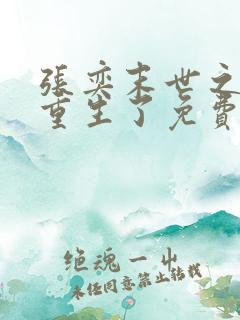 張奕末世之
重生了免費
绝魂一出
未经同意禁止转载